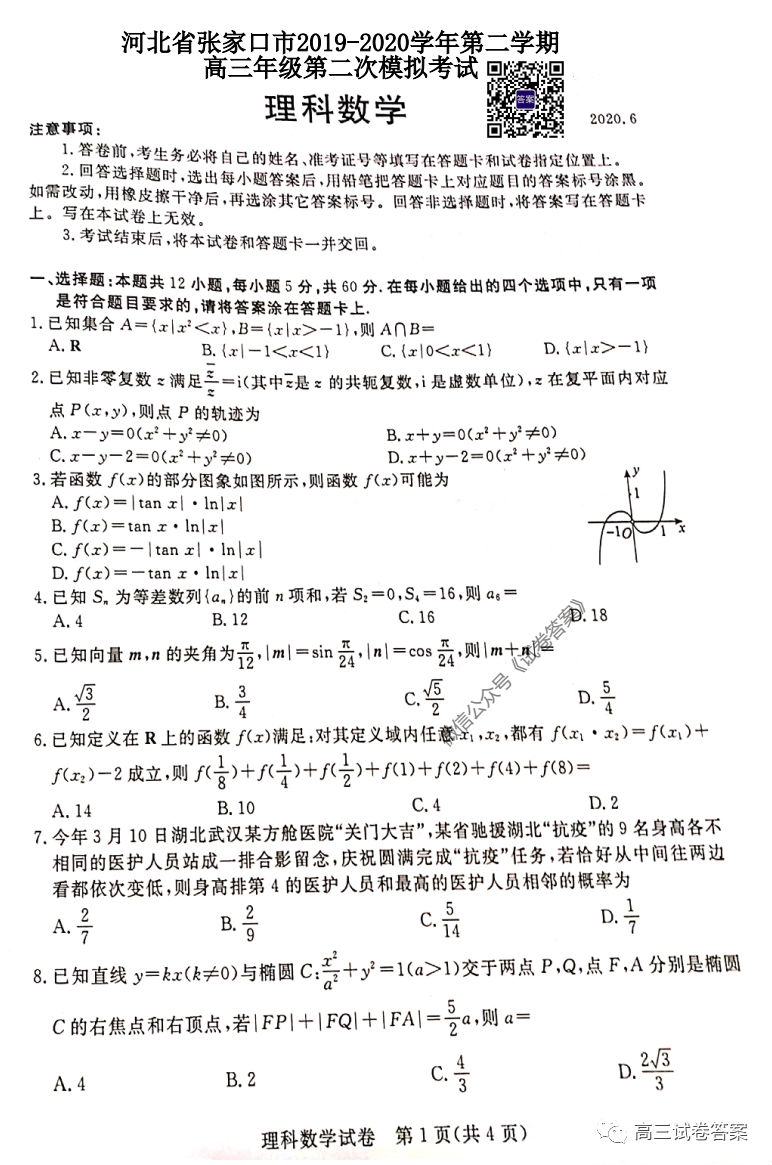 河北省张家口市2019-2020学年第二学期
高三年级第二次模拟考试
答案
理科数学
2020.6
注意事项:
1.答卷前,考生务必将自己的姓名、准考证号等填写在答题卡和试卷指定位置上。
2.回答选择题时,选出每小题答案后,用铅笔把答题卡上对应题目的答案标号涂黑。
如需改动,用橡皮擦干净后,再选涂其它答案标号。回答非选择题时,将答案写在答题卡
上。写在本试卷上无效。
3.考试结束后,将本试卷和答题卡一并交回。
一、选择题:本题共12小题,每小题5分,共60分.在每小题给出的四个选项中,只有一项
是符合题目要求的,请将答案涂在答题卡上.
1.已知集合 A={x|x²<x},B={x|x>-1},则 A∩B=
A.R B.{x|-1<x<1} C.{x|0<x<1} D.{x|x>-1}
2.已知非零复数 z 满足 z̄/z=i(其中 z̄ 是 z 的共轭复数,i 是虚数单位),z 在复平面内对应
点 P(x,y),则点 P 的轨迹为
A.x-y=0(x²+y²≠0) B.x+y=0(x²+y²≠0)
C.x-y-2=0(x²+y²≠0) D.x+y-2=0(x²+y²≠0)
3.若函数 f(x)的部分图象如图所示,则函数 f(x)可能为
A.f(x)=|tan x|·ln|x|
B.f(x)=tan x·ln|x|
C.f(x)=-|tan x|·ln|x|
D.f(x)=-tan x·ln|x|
y
1
-1 O 1 x
4.已知 Sₙ 为等差数列{aₙ}的前 n 项和,若 S₂=0,S₄=16,则 a₆=
A.4 B.12 C.16 D.18
5.已知向量 m,n 的夹角为 π/12,|m|=sin π/24,|n|=cos π/24,则|m+n|=
A.√3/2 B.3/4 C.√5/2 D.5/4
微信公众号《试卷答案》
6.已知定义在 R 上的函数 f(x)满足:对其定义域内任意 x₁,x₂,都有 f(x₁·x₂)=f(x₁)+
f(x₂)-2 成立,则 f(1/8)+f(1/4)+f(1/2)+f(1)+f(2)+f(4)+f(8)=
A.14 B.10 C.4 D.2
7.今年3月10日湖北武汉某方舱医院“关门大吉”,某省驰援湖北“抗疫”的9名身高各不
相同的医护人员站成一排合影留念,庆祝圆满完成“抗疫”任务,若恰好从中间往两边
看都依次变低,则身高排第4的医护人员和最高的医护人员相邻的概率为
A.2/7 B.2/9 C.5/14 D.1/7
8.已知直线 y=kx(k≠0)与椭圆 C:x²/a²+y²=1(a>1)交于两点 P,Q,点 F,A 分别是椭圆
C 的右焦点和右顶点,若|FP|+|FQ|+|FA|=5/2a,则 a=
A.4 B.2 C.4/3 D.2√3/3
理科数学试卷 第1页(共4页)
高三试卷答案